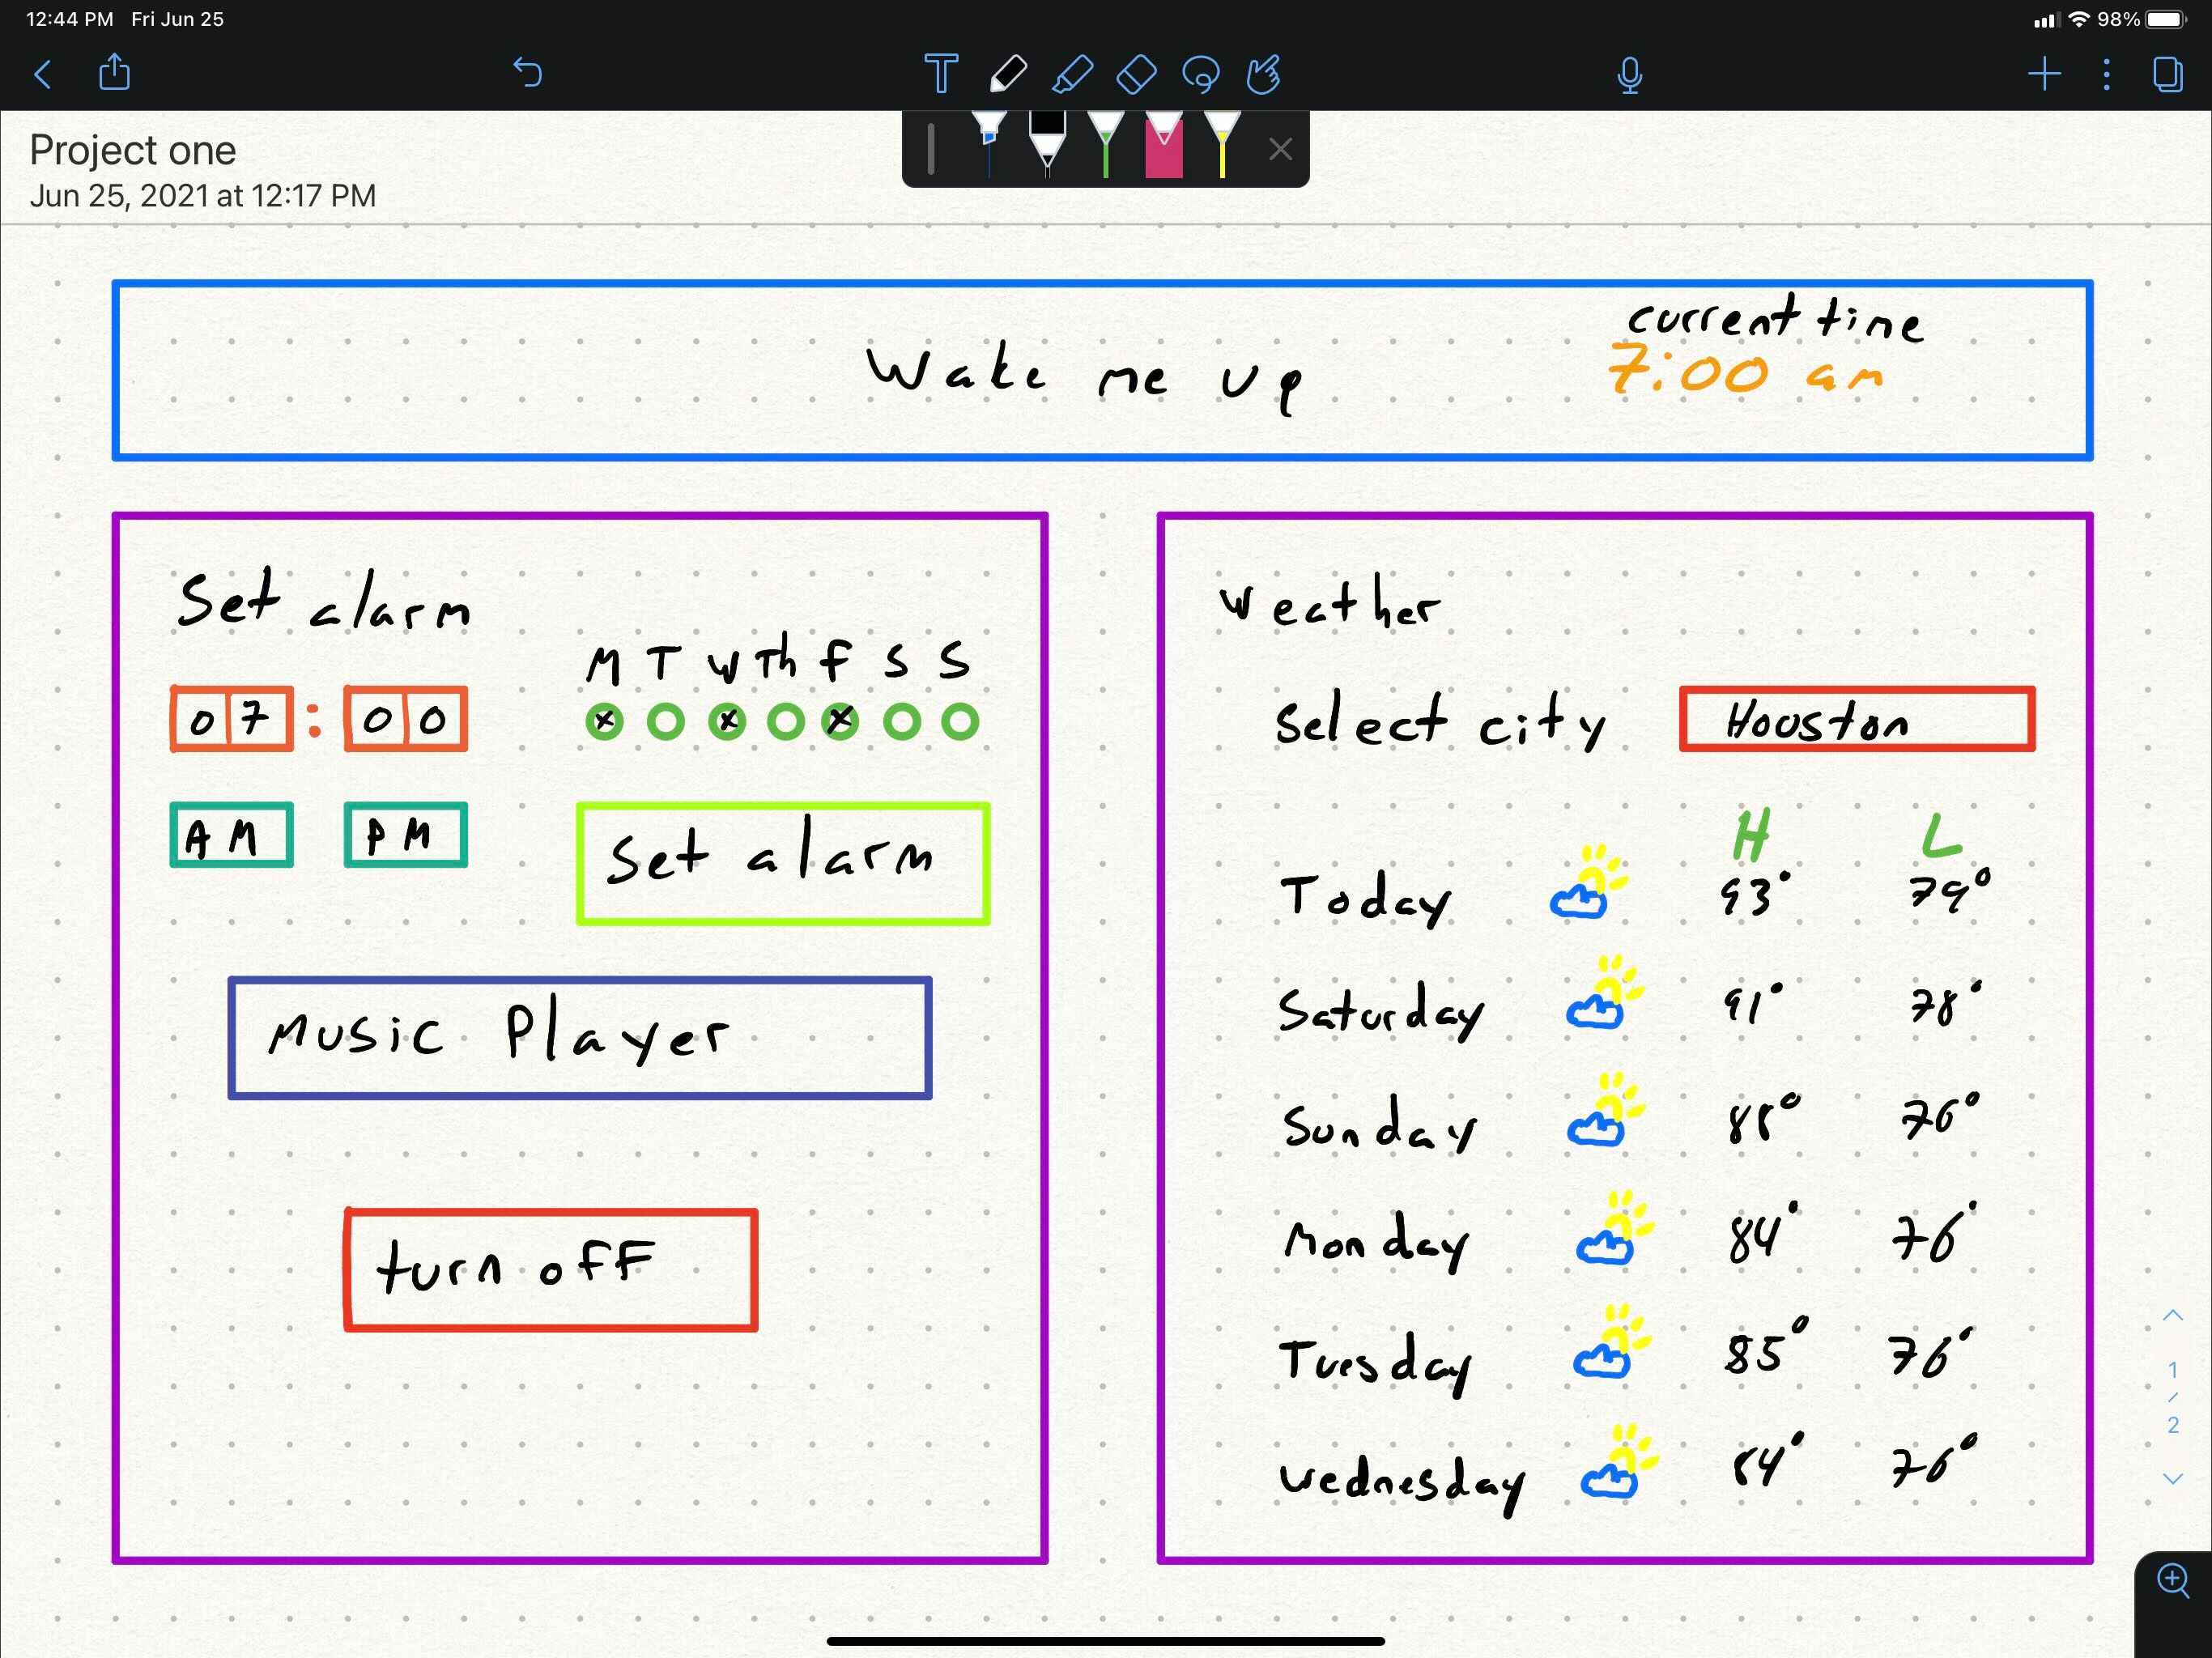 12:44 PM Fri Jun 25 98%
Project one
Jun 25, 2021 at 12:17 PM
current time
Wake me up 7:00 am
Set alarm
M T W Th F S S
07 : 00
AM PM
Set alarm
Music Player
turn off
Weather
Select city Houston
H L
Today 93° 79°
Saturday 91° 78°
Sunday 88° 76°
Monday 84° 76°
Tuesday 85° 76°
Wednesday 84° 76°
1
/
2